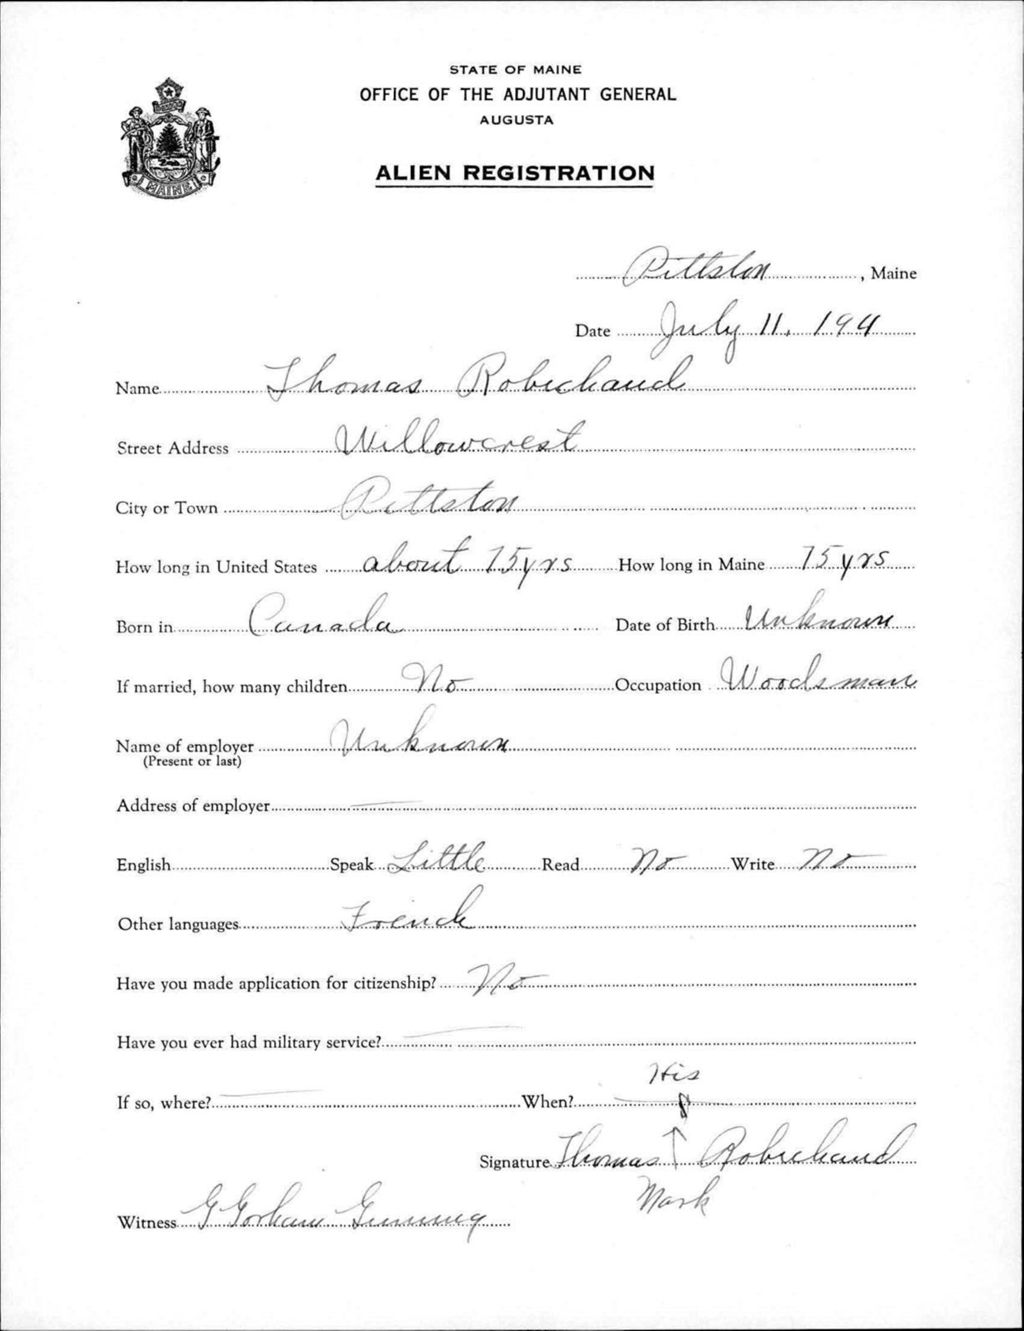 STATE OF MAINE
OFFICE OF THE ADJUTANT GENERAL
AUGUSTA
ALIEN REGISTRATION
MAINE
Pittston, Maine
Date July 11, 1941
Name Thomas Robichaud
Street Address Willowcrest
City or Town Pittston
How long in United States about 75 yrs How long in Maine 75 yrs
Born in Canada Date of Birth Unknown
If married, how many children No Occupation Woodsman
Name of employer Unknown
(Present or last)
Address of employer —
English Speak Little Read No Write No
Other languages French
Have you made application for citizenship? No
Have you ever had military service? —
If so, where? — When? —
His
Signature Thomas Robichaud
Mark
Witness G Gorham